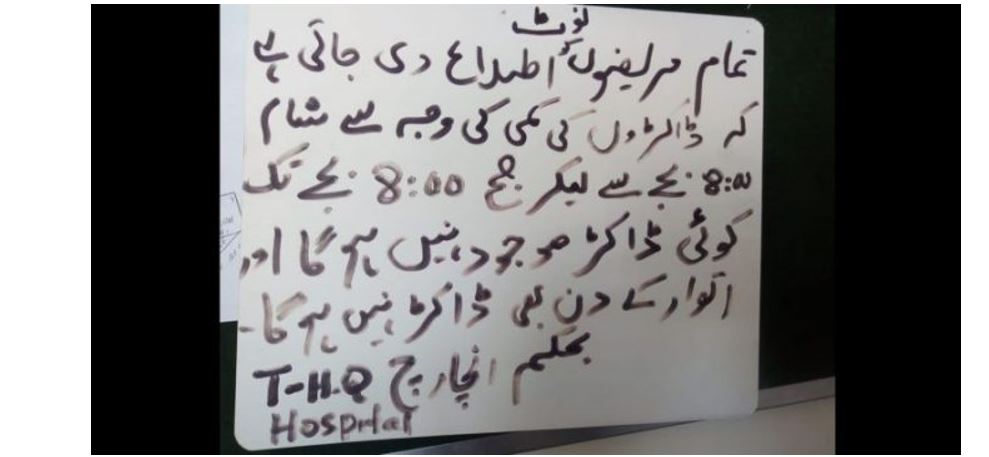 نوٹ
تمام مریضوں کو اطلاع دی جاتی ہے
کہ ڈاکٹروں کی کمی کی وجہ سے شام
8:00 بجے سے لیکر صبح 8:00 بجے تک
کوئی ڈاکٹر موجود نہیں ہو گا اور
اتوار کے دن بھی ڈاکٹر نہیں ہو گا۔
بحکم انچارج T-H.Q
Hospital